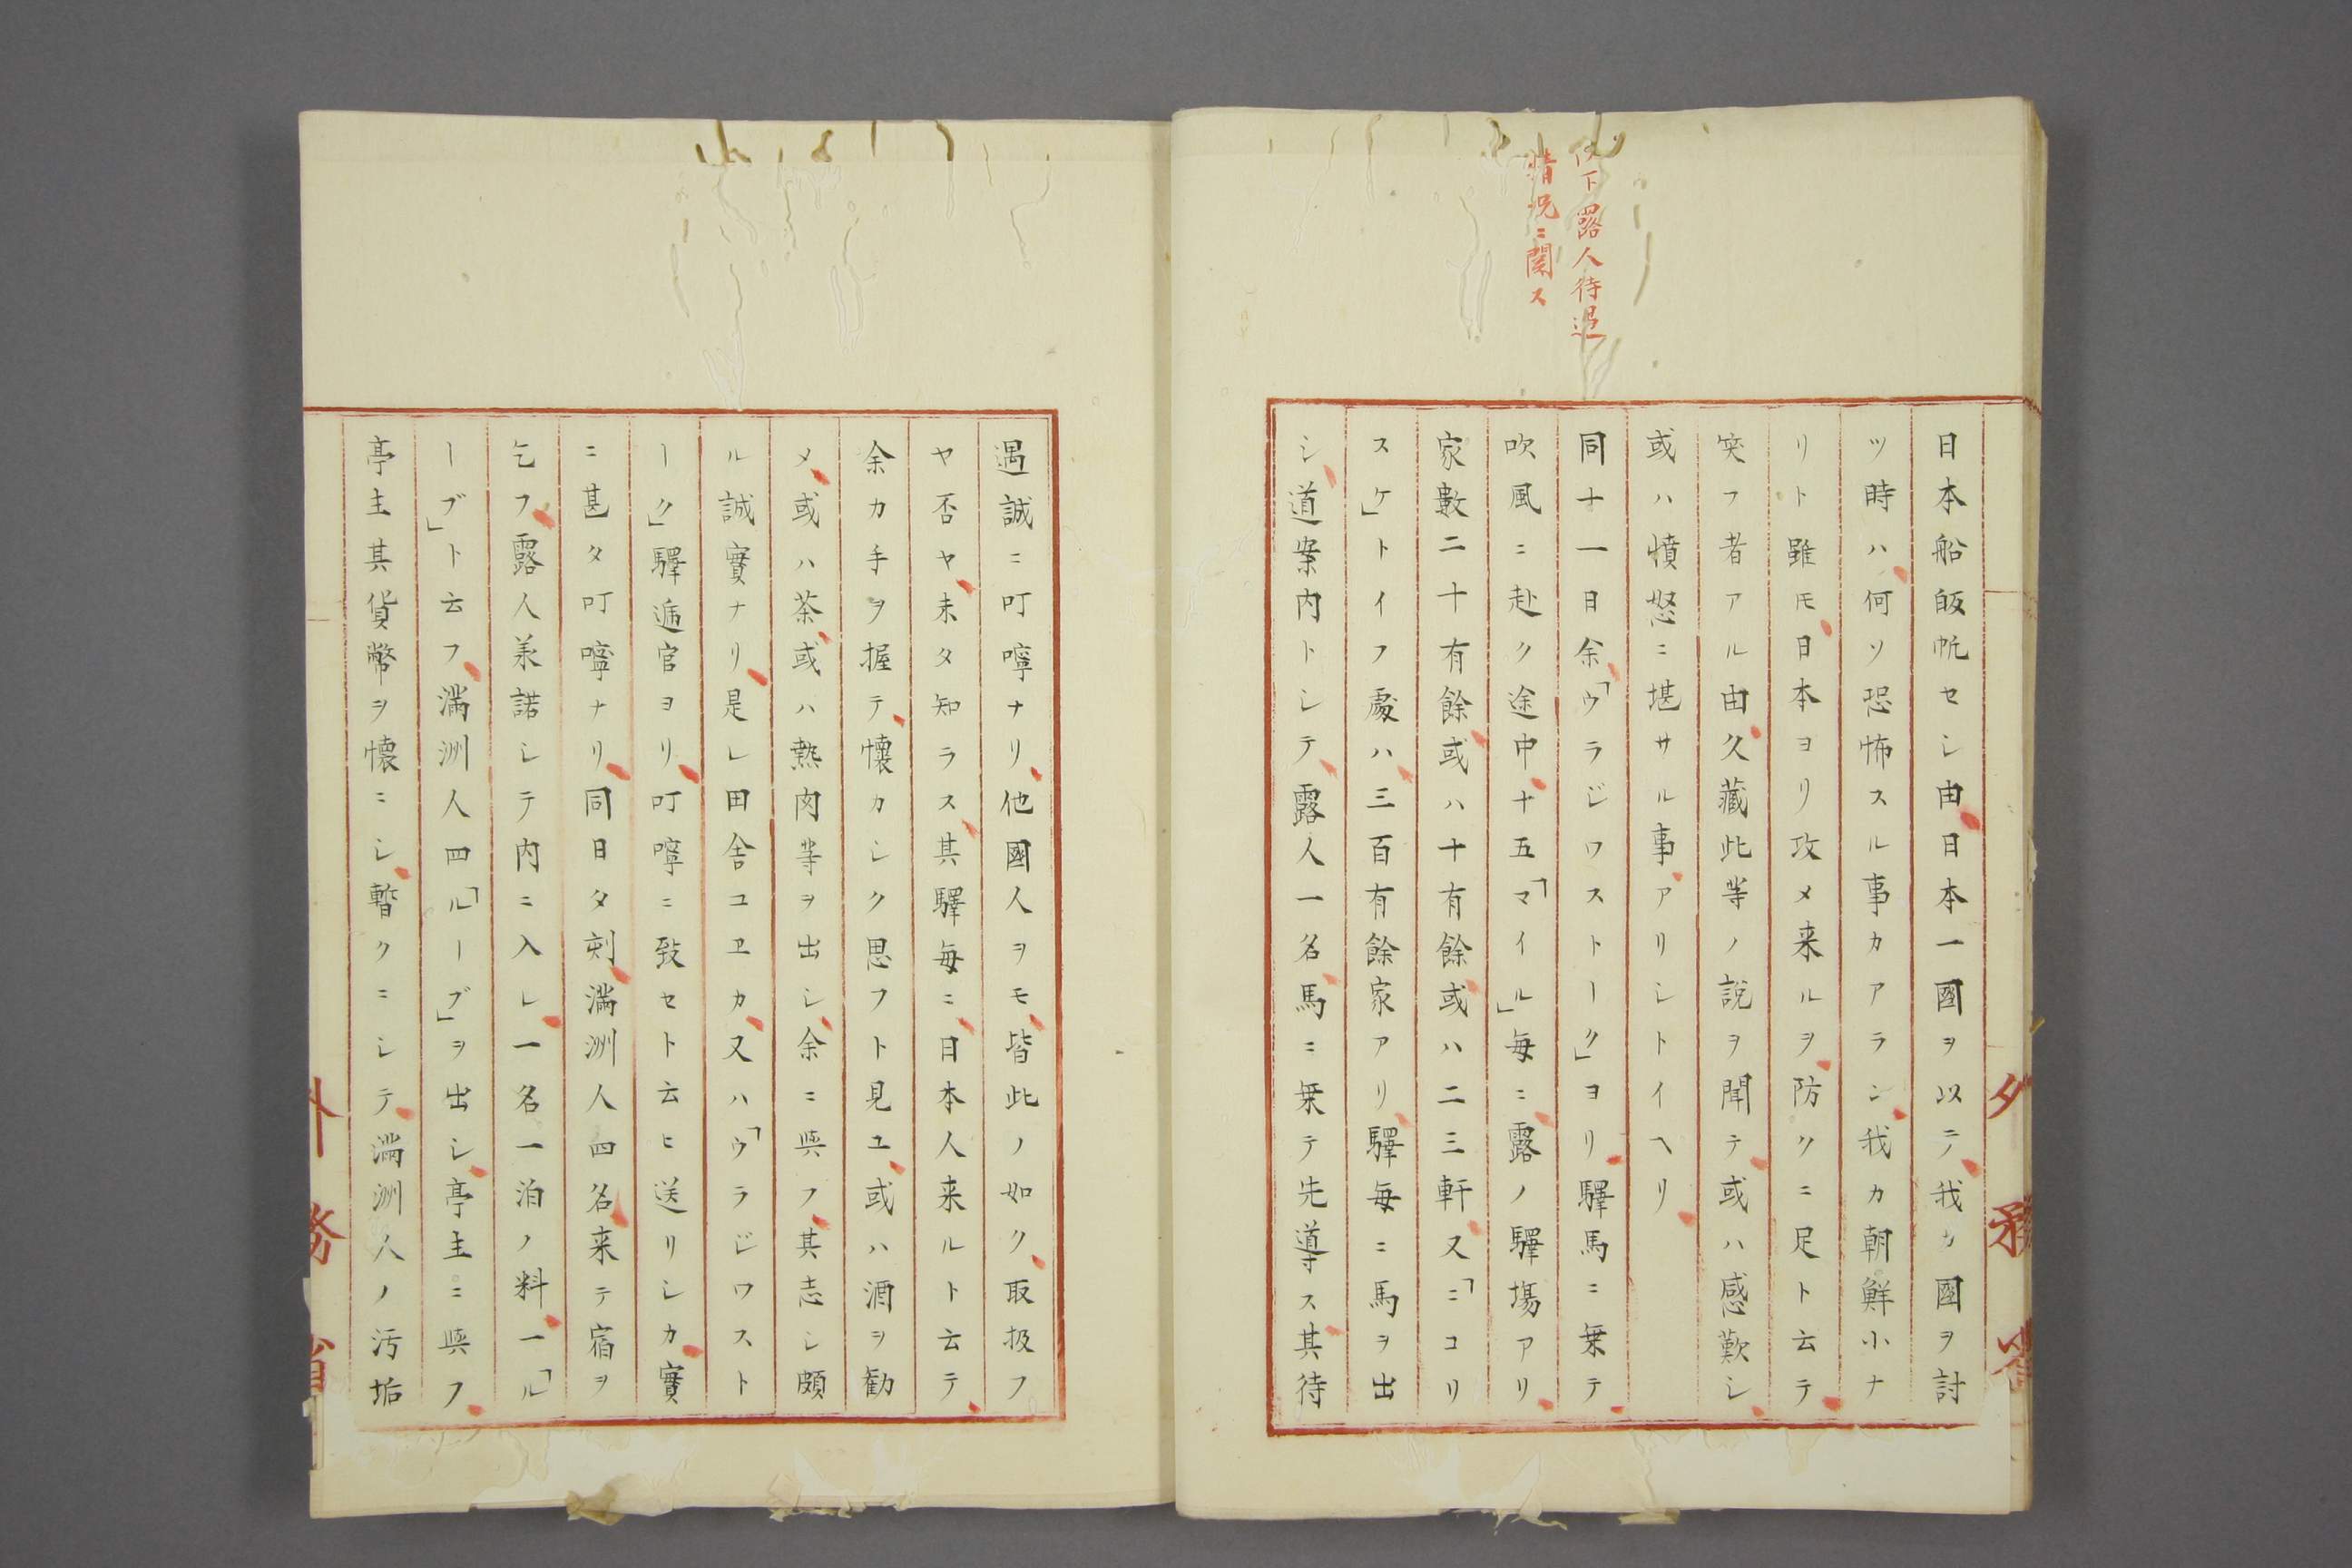 以下露人待遇
情況ニ関ス
日本船皈帆セシ由日本一國ヲ以テ我カ國ヲ討
ツ時ハ何ソ恐怖スル事カアラン我カ朝鮮小ナ
リト雖モ日本ヨリ攻メ来ルヲ防クニ足ト云テ
笑フ者アル由久藏此等ノ説ヲ聞テ或ハ感歎シ
或ハ憤怒ニ堪サル事アリシトイヘリ
同十一日余「ウラジワストーク」ヨリ驛馬ニ乗テ
吹風ニ赴ク途中十五「マイル」毎ニ露ノ驛塲アリ
家數二十有餘或ハ十有餘或ハ二三軒又「ニコリ
スケ」トイフ處ハ三百有餘家アリ驛毎ニ馬ヲ出
シ道案内トシテ露人一名馬ニ乗テ先導ス其待
遇誠ニ叮嚀ナリ他國人ヲモ皆此ノ如ク取扱フ
ヤ否ヤ未タ知ラス其驛毎ニ日本人来ルト云テ
余カ手ヲ握テ懐カシク思フト見ユ或ハ酒ヲ勧
メ或ハ茶或ハ熱肉等ヲ出シ余ニ與フ其志シ頗
ル誠實ナリ是レ田舎ユヱカ又ハ「ウラジワスト
ーク」驛逓官ヨリ叮嚀ニ致セト云ヒ送リシカ實
ニ甚タ叮嚀ナリ同日夕刻滿洲人四名来テ宿ヲ
乞フ露人羕諾シテ内ニ入レ一名一泊ノ料一「ル
ーブ」ト云フ滿洲人四「ルーブ」ヲ出シ亭主ニ與フ
亭主其貨幣ヲ懐ニシ暫クニシテ滿洲人ノ汚垢
外務省